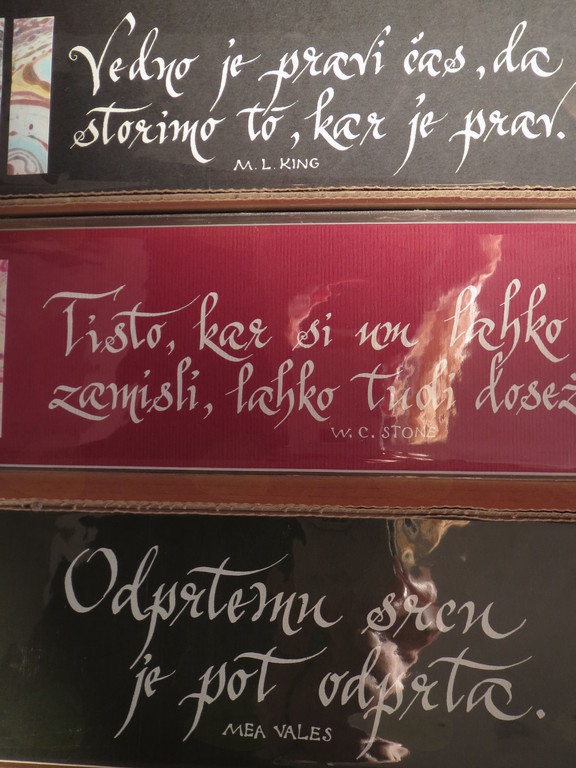 Vedno je pravi čas, da
storimo to, kar je prav.
M. L. KING
Tisto, kar si um lahko
zamisli, lahko tudi dosež
W. C. STONE
Odprtemu srcu
je pot odprta.
MEA VALES